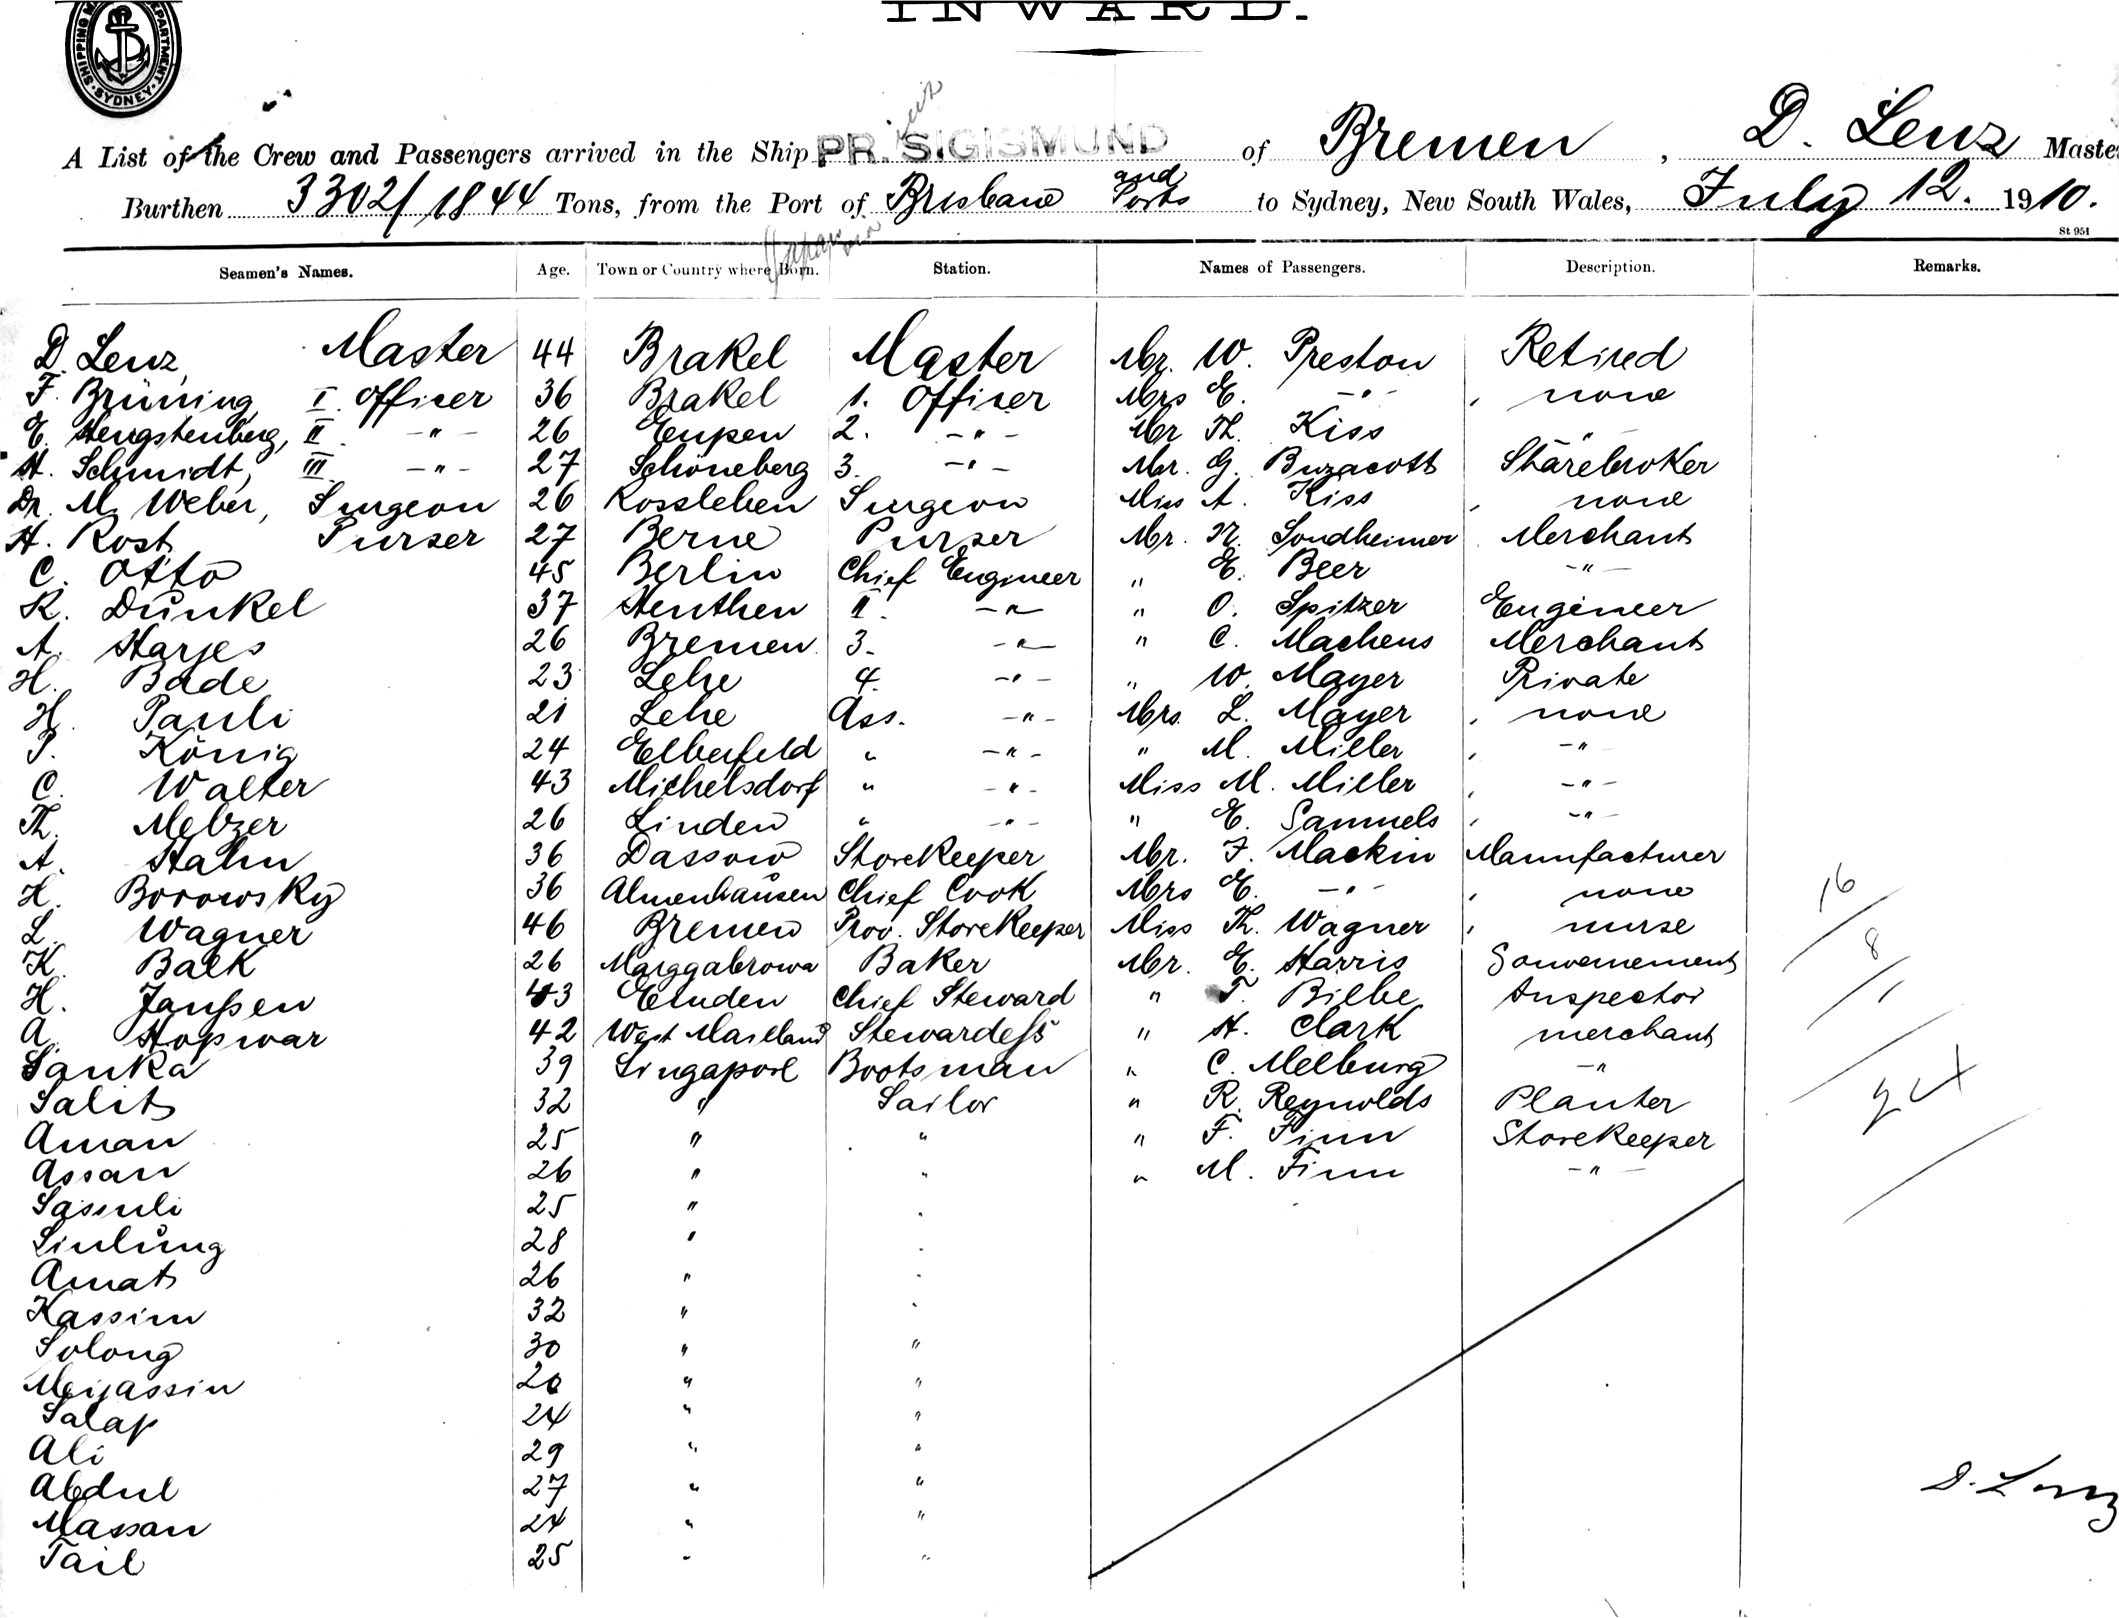 INWARD.
SHIPPING DEPARTMENT SYDNEY
A List of the Crew and Passengers arrived in the Ship PR. SIGISMUND of Bremen, D. Lenz Master
Burthen 3302/1844 Tons, from the Port of Brisbane and Ports to Sydney, New South Wales, July 12. 1910.
St 951
Seamen's Names. Age. Town or Country where Born. Station. Names of Passengers. Description. Remarks.
D. Lenz, Master 44 Brakel Master Mr. W. Preston Retired
F. Brüning I. Officer 36 Brakel 1. Officer Mrs E. -"- , none
E. Hengstenberg, II -"- 26 Eupen 2. -"- Mr Th. Kiss "
H. Schmidt, III -"- 27 Schöneberg 3. -"- Mr. G. Buzacott Sharebroker
Dr. M. Weber, Surgeon 26 Rossleben Surgeon Miss A. Kiss , none
H. Rost Purser 27 Berne Purser Mr. N. Sondheimer Merchant
C. Otto 45 Berlin Chief Engineer " E. Beer -"-
R. Dunkel 37 Henthen II. -"- " O. Spitzer Engineer
A. Harjes 26 Bremen 3. -"- " C. Machens Merchant
H. Bade 23 Lehe 4. -"- " W. Mayer Private
H. Pauli 21 Lehe Ass. -"- Mrs. L. Mayer , none
P. König 24 Elberfeld " -"- " M. Miller , -"-
C. Walter 43 Michelsdorf " -"- Miss M. Miller , -"-
Th. Melzer 26 Linden " -"- " E. Samuels , -"-
A. Stahn 36 Dassow Storekeeper Mr. F. Mackin Manufacturer
H. Borowsky 36 Almenhausen Chief Cook Mrs E. -"- , none
L. Wagner 46 Bremen Prov. Storekeeper Miss Th. Wagner , nurse
K. Balk 26 Marggabrowa Baker Mr. E. Harris Gouvernement
H. Janßen 43 Emden Chief Steward " T. Bilbe Inspector
A. Hopwar 42 West Mailland Stewardeß " H. Clark merchant
Sanka 39 Singapore Bootsman " C. Melburg -"
Salit 32 " Sailor " R. Reynolds Planter
Aman 25 " " " F. Finn Storekeeper
Assan 26 " " " M. Finn -"-
Sasuli 25 "
Sinlung 28 "
Amat 26 "
Kassim 32 "
Solong 30 " "
Meijassin 20 " "
Salap 24 " "
Ali 29 " "
Abdul 27 " "
Massan 24 " "
Tail 25 - "
16
8
1
D. Lenz